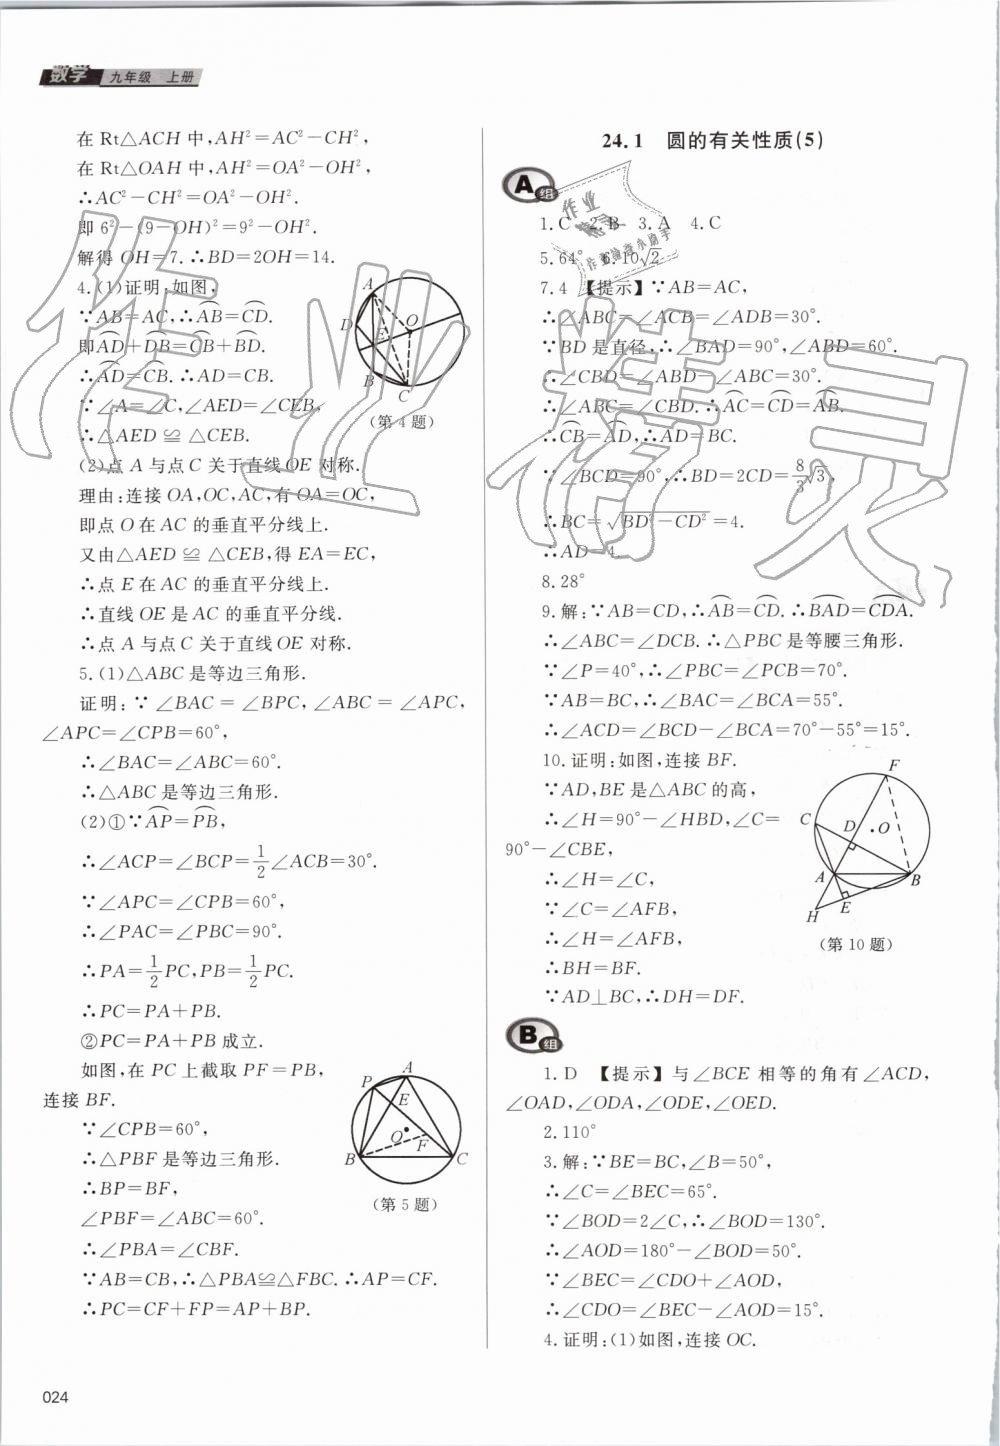 数学 九年级 上册
在 Rt△ACH 中,AH²=AC²−CH²,
在 Rt△OAH 中,AH²=OA²−OH²,
∴AC²−CH²=OA²−OH².
即 6²−(9−OH)²=9²−OH².
解得 OH=7.∴BD=2OH=14.
4.(1)证明:如图,
∵AB=AC,∴A͡B=C͡D.
即A͡D+D͡B=C͡B+B͡D.
∴A͡D=C͡B.∴AD=CB.
∵∠A=∠C,∠AED=∠CEB,
∴△AED≌△CEB.
A
O
D
E
B
C
(第 4 题)
(2)点 A 与点 C 关于直线 OE 对称.
理由:连接 OA,OC,AC,有 OA=OC,
即点 O 在 AC 的垂直平分线上.
又由△AED≌△CEB,得 EA=EC,
∴点 E 在 AC 的垂直平分线上.
∴直线 OE 是 AC 的垂直平分线.
∴点 A 与点 C 关于直线 OE 对称.
5.(1)△ABC 是等边三角形.
证明:∵∠BAC=∠BPC,∠ABC=∠APC,
∠APC=∠CPB=60°,
∴∠BAC=∠ABC=60°.
∴△ABC 是等边三角形.
(2)①∵A͡P=P͡B,
∴∠ACP=∠BCP=1/2∠ACB=30°.
∵∠APC=∠CPB=60°,
∴∠PAC=∠PBC=90°.
∴PA=1/2PC,PB=1/2PC.
∴PC=PA+PB.
②PC=PA+PB 成立.
如图,在 PC 上截取 PF=PB,
连接 BF.
∵∠CPB=60°,
∴△PBF 是等边三角形.
∴BP=BF,
∠PBF=∠ABC=60°.
∴∠PBA=∠CBF.
A
P
E
O
F
B
C
(第 5 题)
∵AB=CB,∴△PBA≌△FBC.∴AP=CF.
∴PC=CF+FP=AP+BP.
024
24.1 圆的有关性质(5)
A组
1.C 2.B 3.A 4.C
5.64° 6.10√2
7.4 【提示】∵AB=AC,
∴∠ABC=∠ACB=∠ADB=30°.
∵BD 是直径,∴∠BAD=90°,∠ABD=60°.
∴∠CBD=∠ABD−∠ABC=30°.
∴∠ABC=∠CBD.∴A͡C=C͡D=A͡B.
∴C͡B=A͡D,∴AD=BC.
∵∠BCD=90°,∴BD=2CD=8/3√3,
∴BC=√(BD²−CD²)=4.
∴AD=4.
8.28°
9.解:∵AB=CD,∴A͡B=C͡D.∴B͡AD=C͡DA.
∴∠ABC=∠DCB.∴△PBC 是等腰三角形.
∵∠P=40°,∴∠PBC=∠PCB=70°.
∵AB=BC,∴∠BAC=∠BCA=55°.
∴∠ACD=∠BCD−∠BCA=70°−55°=15°.
10.证明:如图,连接 BF.
∵AD,BE 是△ABC 的高,
∴∠H=90°−∠HBD,∠C=
90°−∠CBE,
∴∠H=∠C,
∵∠C=∠AFB,
∴∠H=∠AFB,
∴BH=BF.
∵AD⊥BC,∴DH=DF.
F
C
D
O
A
B
E
H
(第 10 题)
B组
1.D 【提示】与∠BCE 相等的角有∠ACD,
∠OAD,∠ODA,∠ODE,∠OED.
2.110°
3.解:∵BE=BC,∠B=50°,
∴∠C=∠BEC=65°.
∵∠BOD=2∠C,∴∠BOD=130°.
∴∠AOD=180°−∠BOD=50°.
∵∠BEC=∠CDO+∠AOD,
∴∠CDO=∠BEC−∠AOD=15°.
4.证明:(1)如图,连接 OC.
作业精灵